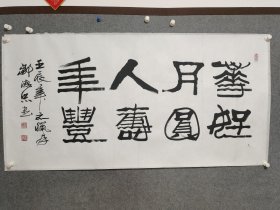 華好
月圓
人壽
年豐
壬辰年之臘月